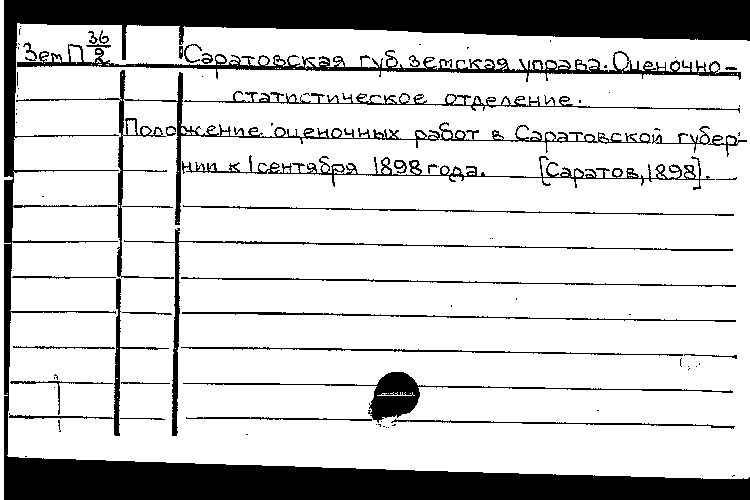 Зем П 36/2 Саратовская губ. земская управа. Оценочно-
статистическое отделение.
Положение оценочных работ в Саратовской губер-
нии к 1 сентября 1898 года. [Саратов, 1898].